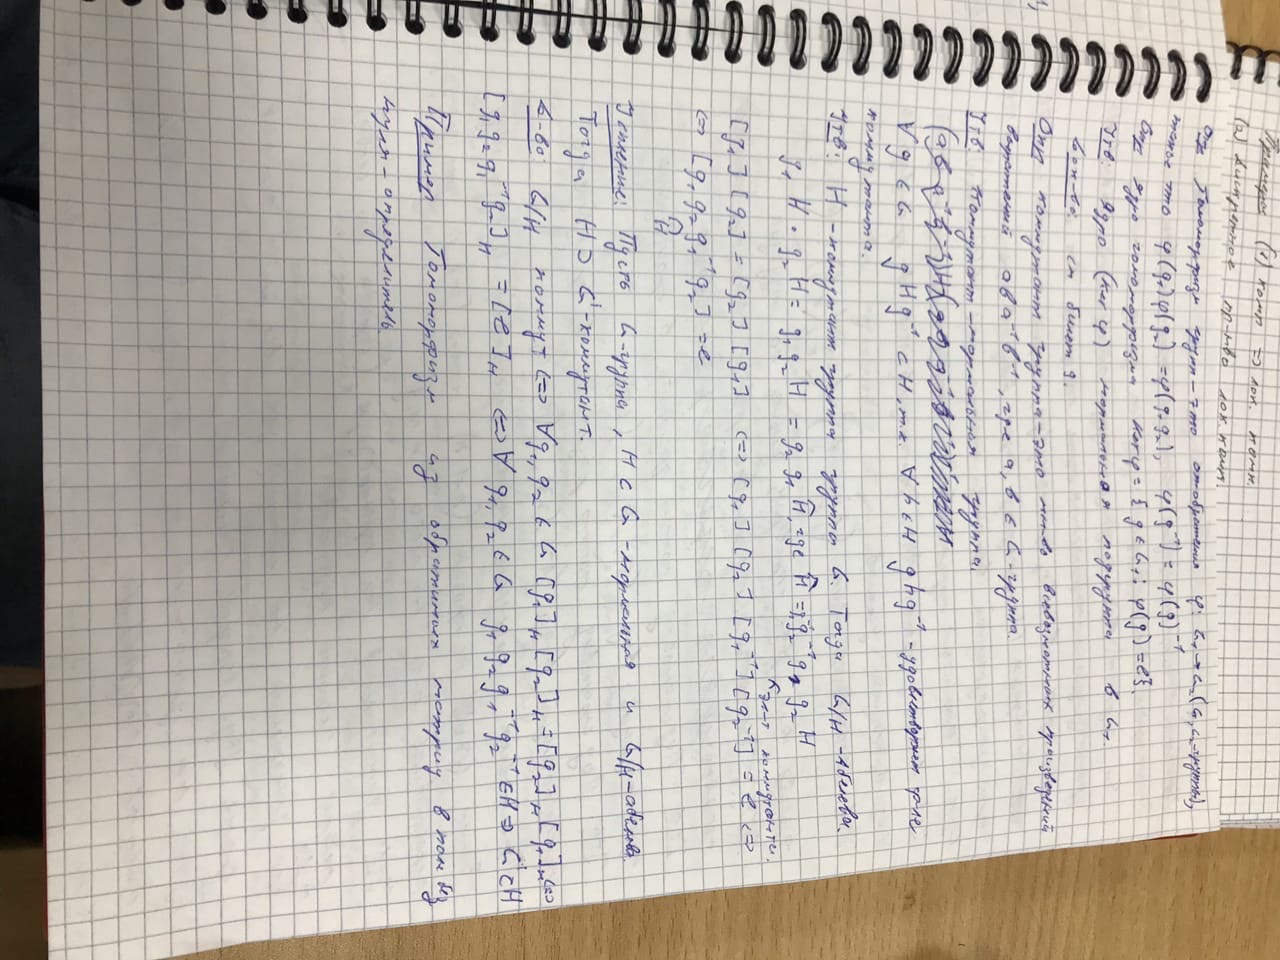 Примеры (1) комп ⇒ лок. комп.
(2) Дискретное пр-тво лок. комп.
Опр Гомоморфизм групп - это отображения φ: G₁→G₂ (G₁, G₂-группы),
такое что φ(g₁)φ(g₂) = φ(g₁g₂), φ(g⁻¹) = φ(g)⁻¹
Опр Ядро гомоморфизма Kerφ = {g ∈ G₁: φ(g) = e}.
Утв: Ядро (Ker φ) нормальная подгруппа в G₁.
Док-во: см билет 9.
Опр Коммутант группа - это мн-во всевозможных произведений
выражений aba⁻¹b⁻¹, где a, b ∈ G-группа.
Утв: Коммутант - нормальная группа.
∀g ∈ G gHg⁻¹ ⊂ H, т.к. ∀h∈H ghg⁻¹ - удовлетворяет ф-ле
коммутанта.
Утв: H - коммутант группа группа G. Тогда G/H - Абелева.
g₁H · g₂H = g₁g₂H = g₂g₁Ĥ, где Ĥ = g₁⁻¹g₂⁻¹g₁g₂H
эл-т коммутанта.
[g₁][g₂] = [g₂][g₁] ⇔ [g₁][g₂][g₁⁻¹][g₂⁻¹] = e ⇔
⇔ [g₁g₂g₁⁻¹g₂] = e
H
Усиление: Пусть G-группа, H ⊂ G - нормальная и G/H - абелева.
Тогда H ⊃ G' - коммутант.
Д-во: G/H коммут ⇔ ∀g₁, g₂ ∈ G [g₁]_H [g₂]_H = [g₂]_H [g₁]_H ⇔
[g₁g₂g₁⁻¹g₂⁻¹]_H = [e]_H ⇔ ∀ g₁, g₂ ∈ G g₁g₂g₁⁻¹g₂⁻¹ ∈ H ⇒ G' ⊂ H
Пример Гомоморфизм из обратимых матриц в поле без
нуля - определитель.